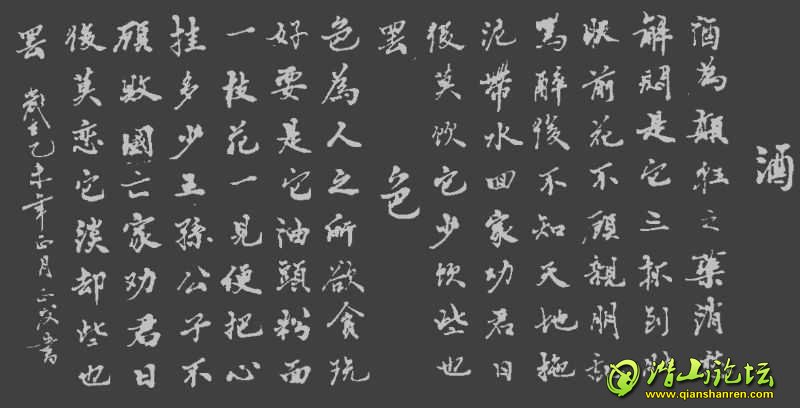 酒
酒為顛狂之藥消
解悶是它三杯到
眼前花不顧親朋
罵醉後不知天地拖
泥帶水回家劝君日
後莫飲它少些也
罢
色
色為人之所欲貪玩
好耍是它油頭粉面
一枝花一見便把心
挂多少王孫公子不
顧敗國亡家劝君日
後莫恋它淡却些也
罢
歲在乙未年正月書
潜山论坛
www.qianshanren.com